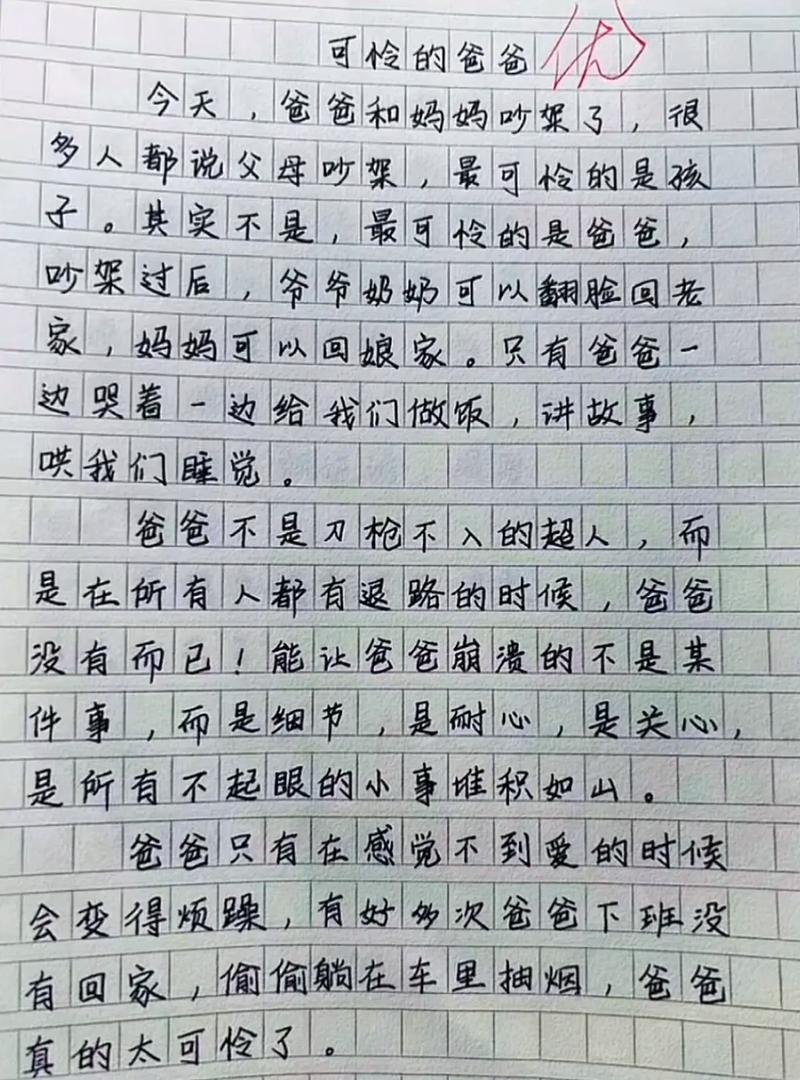 可怜的爸爸 优
今天，爸爸和妈妈吵架了，很
多人都说父母吵架，最可怜的是孩
子。其实不是，最可怜的是爸爸，
吵架过后，爷爷奶奶可以翻脸回老
家，妈妈可以回娘家。只有爸爸一
边哭着一边给我们做饭，讲故事，
哄我们睡觉。
爸爸不是刀枪不入的超人，而
是在所有人都有退路的时候，爸爸
没有而已！能让爸爸崩溃的不是某
件事，而是细节，是耐心，是关心，
是所有不起眼的小事堆积如山。
爸爸只有在感觉不到爱的时候
会变得烦躁，有好多次爸爸下班没
有回家，偷偷躺在车里抽烟，爸爸
真的太可怜了。